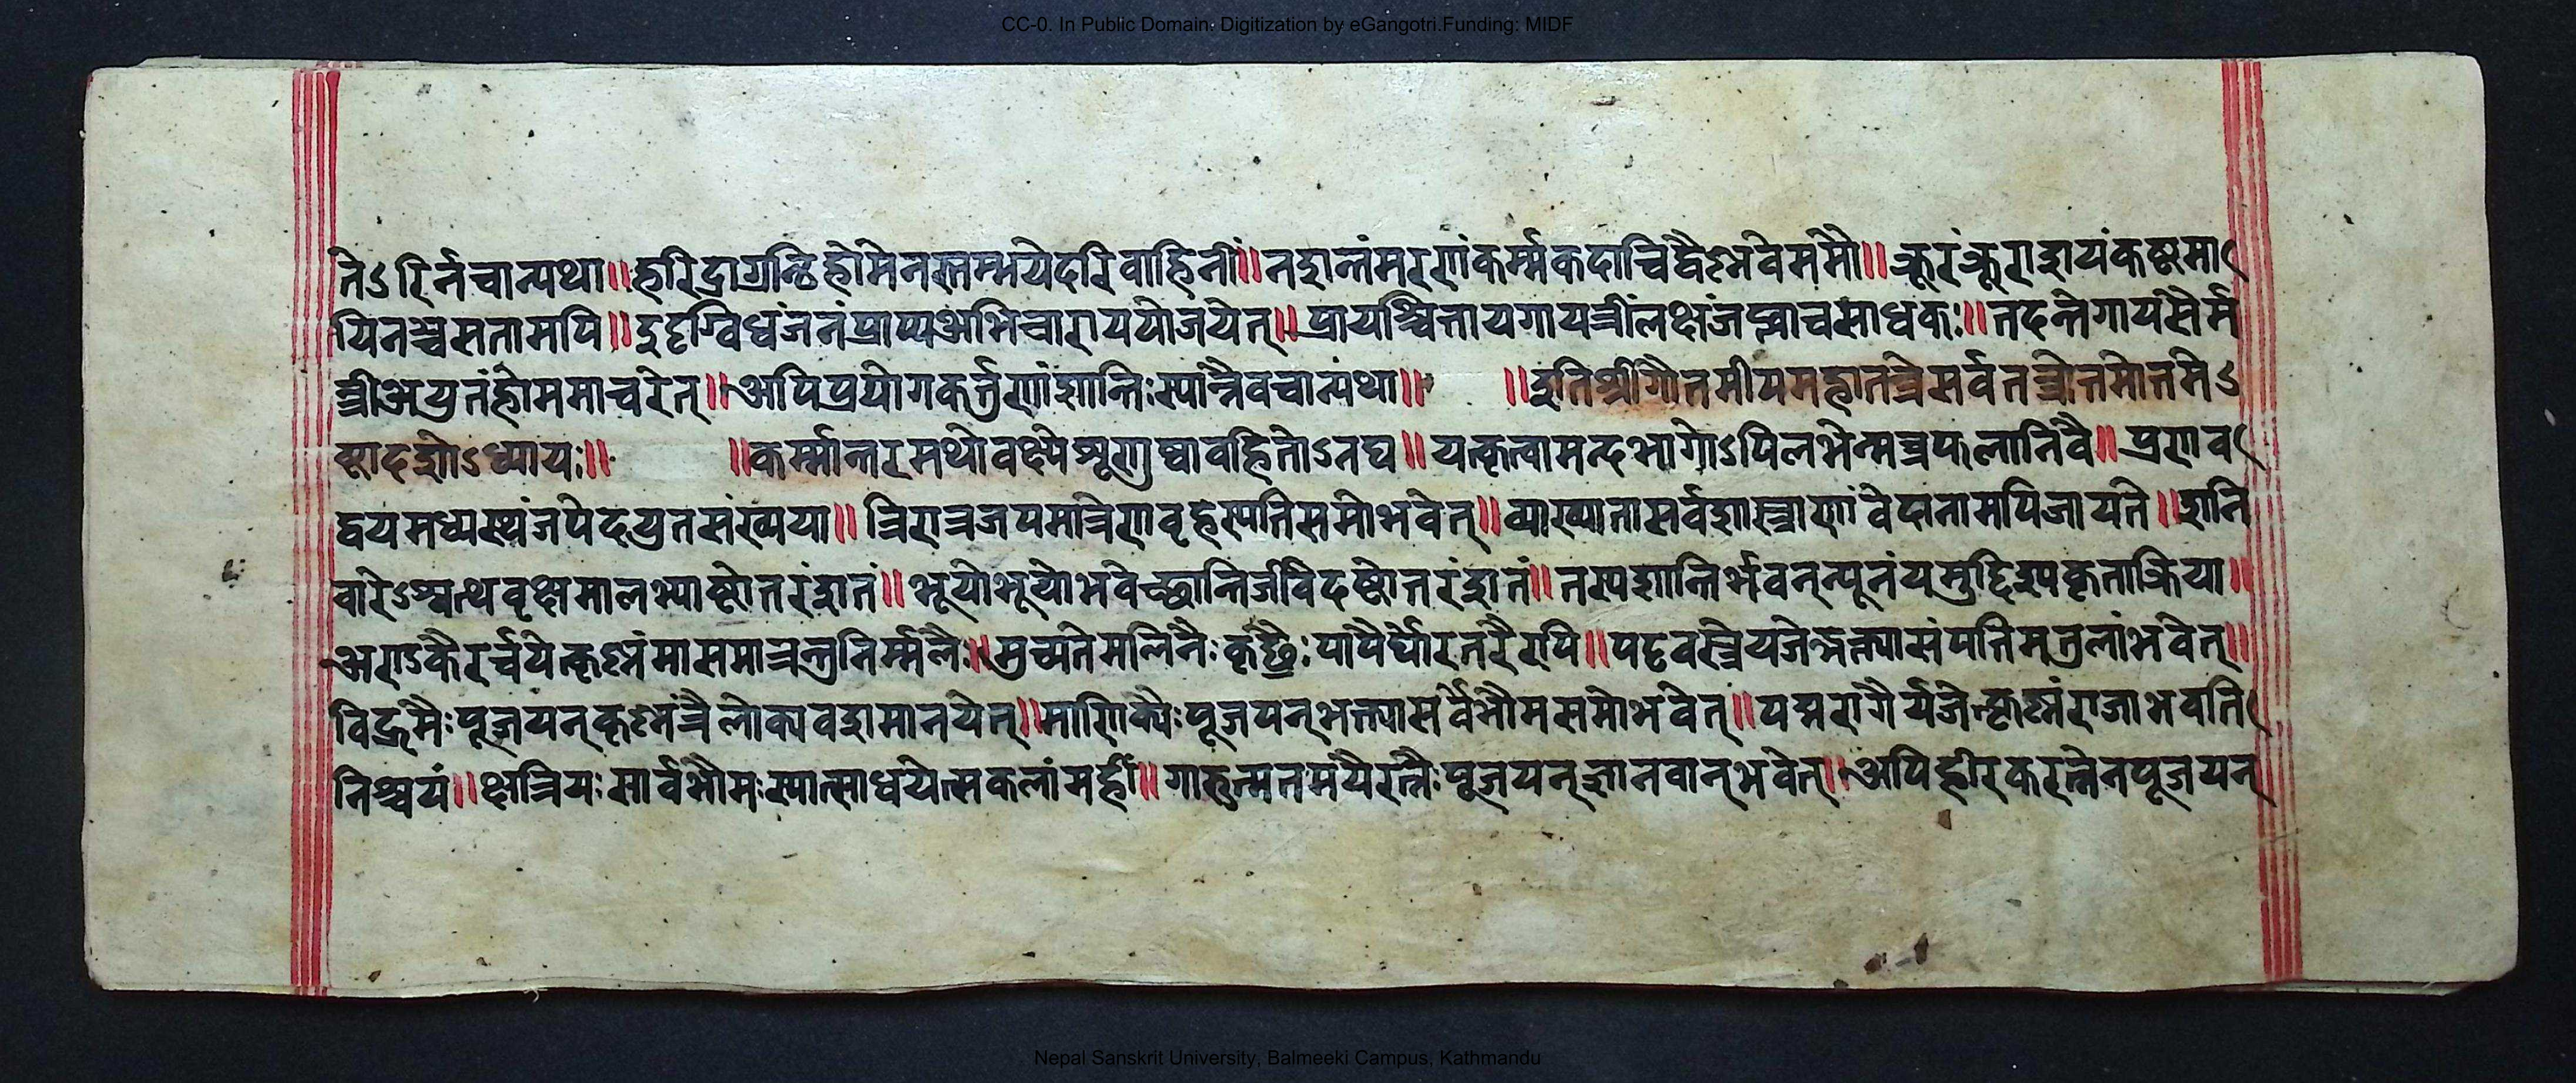 CC-0. In Public Domain. Digitization by eGangotri.Funding: MIDF
तेऽरिर्नचान्यथा॥हरिद्राग्रन्थिहोमेनस्तम्भयेदरिवाहिनीं॥नशान्तंमरणंकर्म्मकदाचिद्वैष्नवेममौ॥क्रूरंक्रूराशयंकष्टमा
यिनश्चसतामपि॥दुदृग्विधंजनंप्राप्यअभिचाराययोजयेत्॥प्रायश्चित्तायगायत्रींलक्षंजप्त्वाचसाधकः॥तदन्तेगायसैर्म
न्त्रीअयुतंहोममाचरेत्॥अपिप्रयोगकर्त्तृणांशान्तिःस्यान्नैवचान्यथा॥ ॥इतिश्रीगौतमीयमहातन्त्रेसर्वतन्त्रोत्तमोत्तमेऽ
ष्टादशोऽध्यायः॥ ॥कर्म्मान्तरमथोवक्ष्येशृणुष्वावहितोऽनघ॥यत्कृत्वामन्दभाग्योऽपिलभेन्मन्त्रफलानिवै॥प्रणव
द्वयमध्यस्थंजपेदयुतसंख्यया॥त्रिरात्रजपमात्रेणवृहस्पतिसमोभवेत्॥व्याख्यातासर्वशास्त्राणांवेदानामपिजायते॥शनि
वारेऽश्वत्थवृक्षमालभ्याष्टोत्तरंशतं॥भूयोभूयोभवेच्छान्तिर्जपेदष्टोत्तरंशतं॥तस्यशान्तिर्भवेन्न्यूनंयमुद्दिश्यकृताक्रिया॥
अर्चयेत्कृष्नंमासमात्रन्तुनिर्म्मलैः॥मुच्यतेमलिनैःकृच्छ्रैःपापैर्घोरतरैरपि॥पट्टवस्त्रैर्यजेद्भक्त्यासंपत्तिमतुलांभवेत्॥
विद्रुमैःपूजयन्कृष्नंत्रैलोक्यवशमानयेत्॥माणिक्यैःपूजयन्भक्त्यासर्वभौमसमोभवेत्॥पद्मरागैर्यजेत्कृष्नंराजाभवति
निश्चयं॥क्षत्रियःसार्वभौमःस्यात्साधयेत्सकलांमहीं॥गारुत्मतमयैरत्नैःपूजयन्ज्ञानवान्भवेत्॥अपिहीरकरत्नेनपूजयन्
Nepal Sanskrit University, Balmeeki Campus, Kathmandu